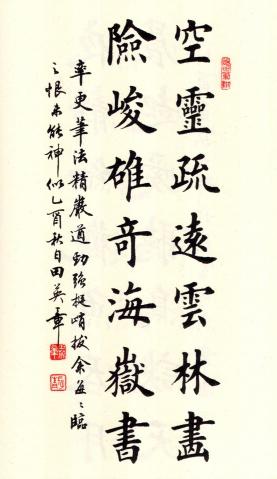 空靈疏遠雲林畫
險峻雄奇海嶽書
率更筆法精嚴遒勁強挺峭拔余每〻臨
之恨未能神似乙酉秋日田英章